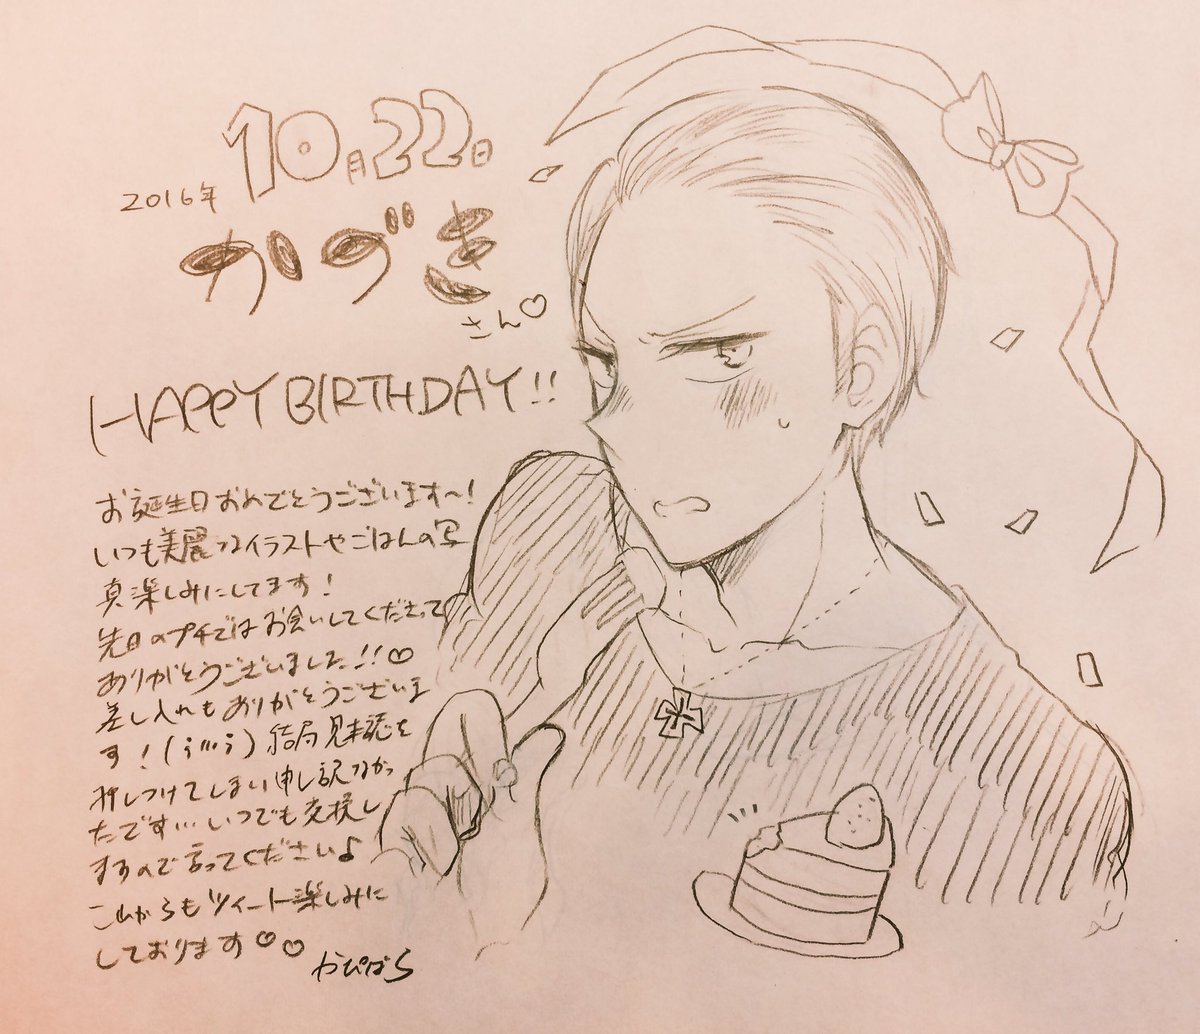 2016年10月22日
かづき
さん♡
HAPPY BIRTHDAY!!
お誕生日おめでとうございます〜!
いつも美麗なイラストやごはんの写
真楽しみにしてます!
先日のプチではお会いしてくださって
ありがとうございました!!♡
差し入れもありがとうございま
す!(
結局
を
押しつけてしまい申し訳なかっ
たです…いつでも交換し
ますので言ってくださいよ
これからもツイート楽しみに
しております♡♡
かぴばら